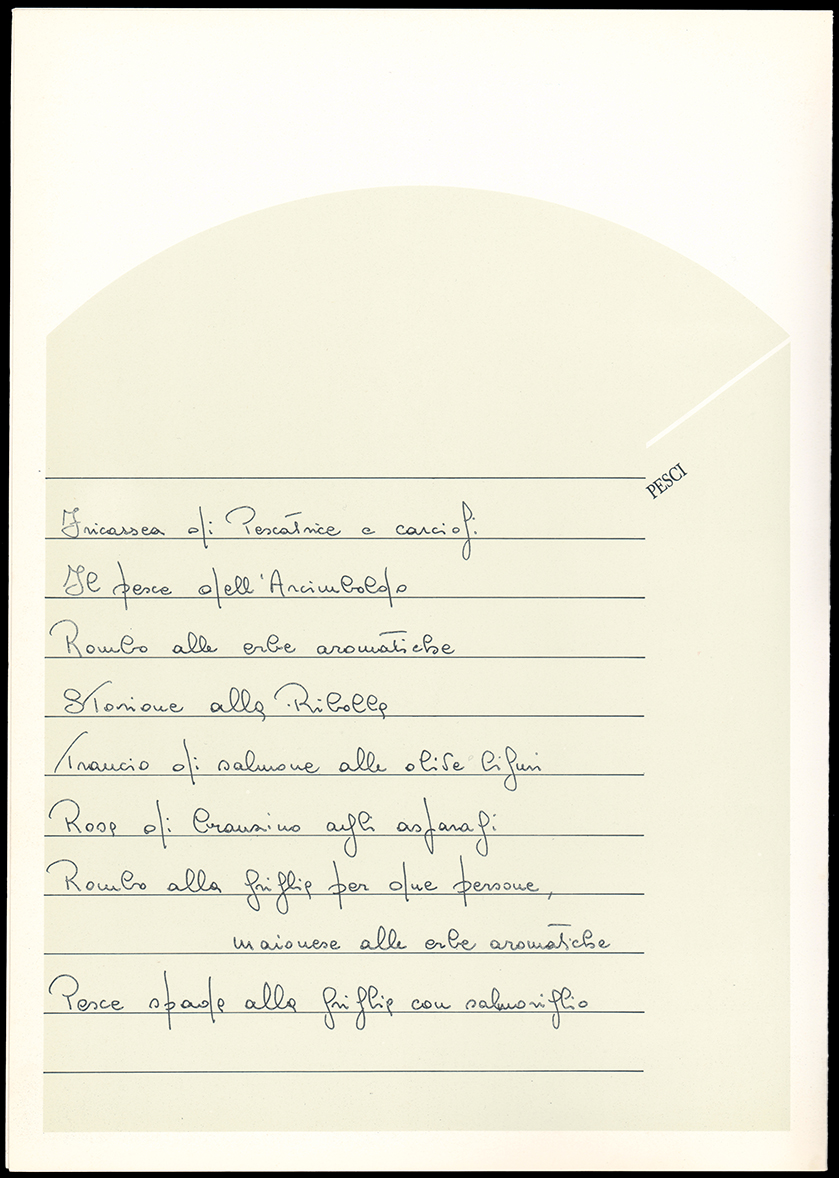 PESCI
Fricassea di Pescatrice e carciofi
Il pesce dell'Arcimboldo
Rombo alle erbe aromatiche
Storione alla Ribolla
Trancio di salmone alle olive liguri
Rosa di branzino agli asparagi
Rombo alla griglia per due persone,
maionese alle erbe aromatiche
Pesce spada alla griglia con salmoriglio